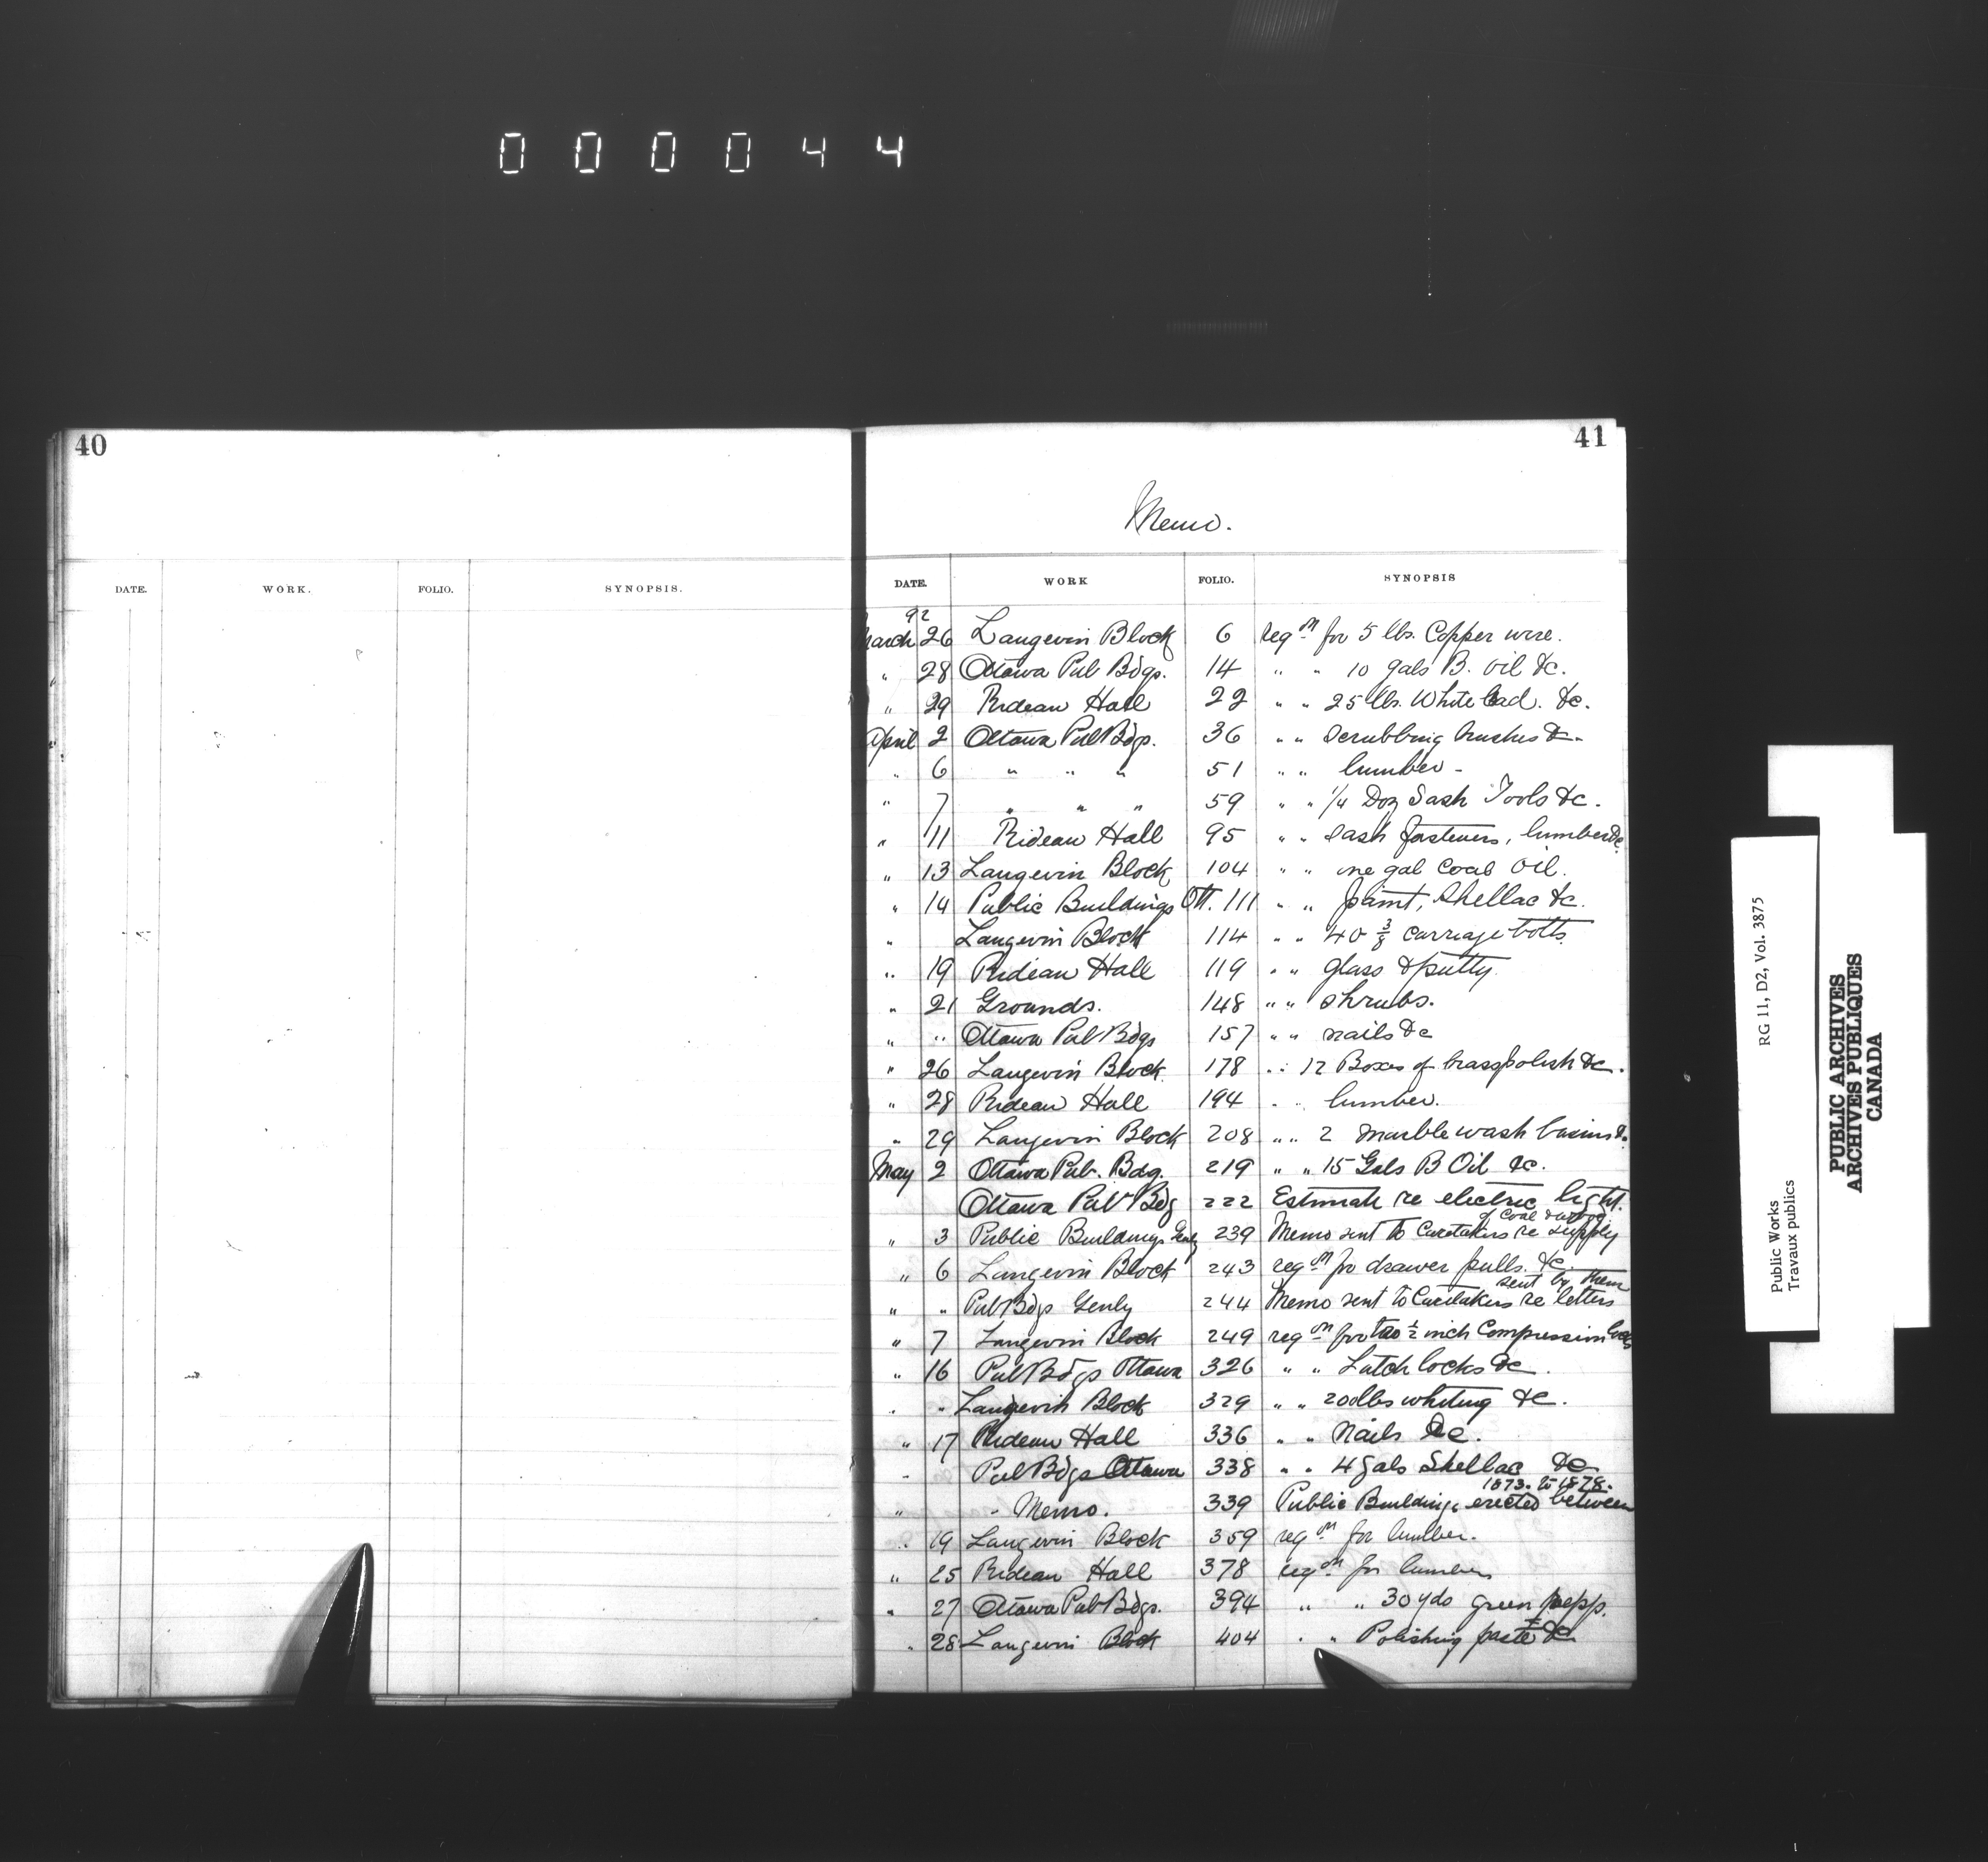 000044
40
DATE. WORK. FOLIO. SYNOPSIS.
41
Memo.
DATE. WORK FOLIO. SYNOPSIS
92
March 26 Langevin Block 6 reqn for 5 lbs. Copper wire.
" 28 Ottawa Pub Bdgs. 14 " " 10 gals B. oil &c.
" 29 Rideau Hall 22 " " 25 lbs. White lead. &c.
April 2 Ottawa Pub Bdgs. 36 " " Scrubbing brushes &c
" 6 " " " 51 " " lumber -
" 7 " " " 59 " " 1/4 Doz Sash Tools &c.
" 11 Rideau Hall 95 " " Sash fasteners, lumber &c.
" 13 Langevin Block 104 " " one gal Coal Oil.
" 14 Public Buildings Ott. 111 " " paint, Shellac &c.
" Langevin Block 114 " " 40 3/8 carriage bolts
" 19 Rideau Hall 119 " " glass & putty.
" 21 Grounds. 148 " " shrubs.
" " Ottawa Pub Bdgs 157 " " nails &c
" 26 Langevin Block 178 " " 12 Boxes of brass polish &c.
" 28 Rideau Hall 194 " " lumber.
" 29 Langevin Block 208 " " 2 marble wash basins &c.
May 2 Ottawa Pub. Bdg. 219 " " 15 Gals B Oil &c.
Ottawa Pub Bdg 222 Estimate re electric light.
of Coal & wood
" 3 Public Buildings Genly 239 Memo sent to Caretakers re supply
" 6 Langevin Block 243 reqn for drawer pulls. &c.
sent by them
" " Pub Bdgs Genly 244 Memo sent to Caretakers re letters
" 7 Langevin Block 249 reqn for two 1/2 inch Compression
" 16 Pub Bdgs Ottawa 326 " " Latch locks &c.
" " Langevin Block 329 " " 200 lbs whiting &c.
" 17 Rideau Hall 336 " " Nails &c.
" Pub Bdgs Ottawa 338 " " 4 gals Shellac &c
1873. to 1878.
" " Memo. 339 Public Buildings erected between
" 19 Langevin Block 359 reqn for lumber.
" 25 Rideau Hall 378 reqn for lumber
" 27 Ottawa Pub Bdgs. 394 " " 30 yds green
" 28 Langevin Block 404 " " Polishing paste &c
RG 11, D2, Vol. 3875
Public Works
Travaux publics
PUBLIC ARCHIVES
ARCHIVES PUBLIQUES
CANADA